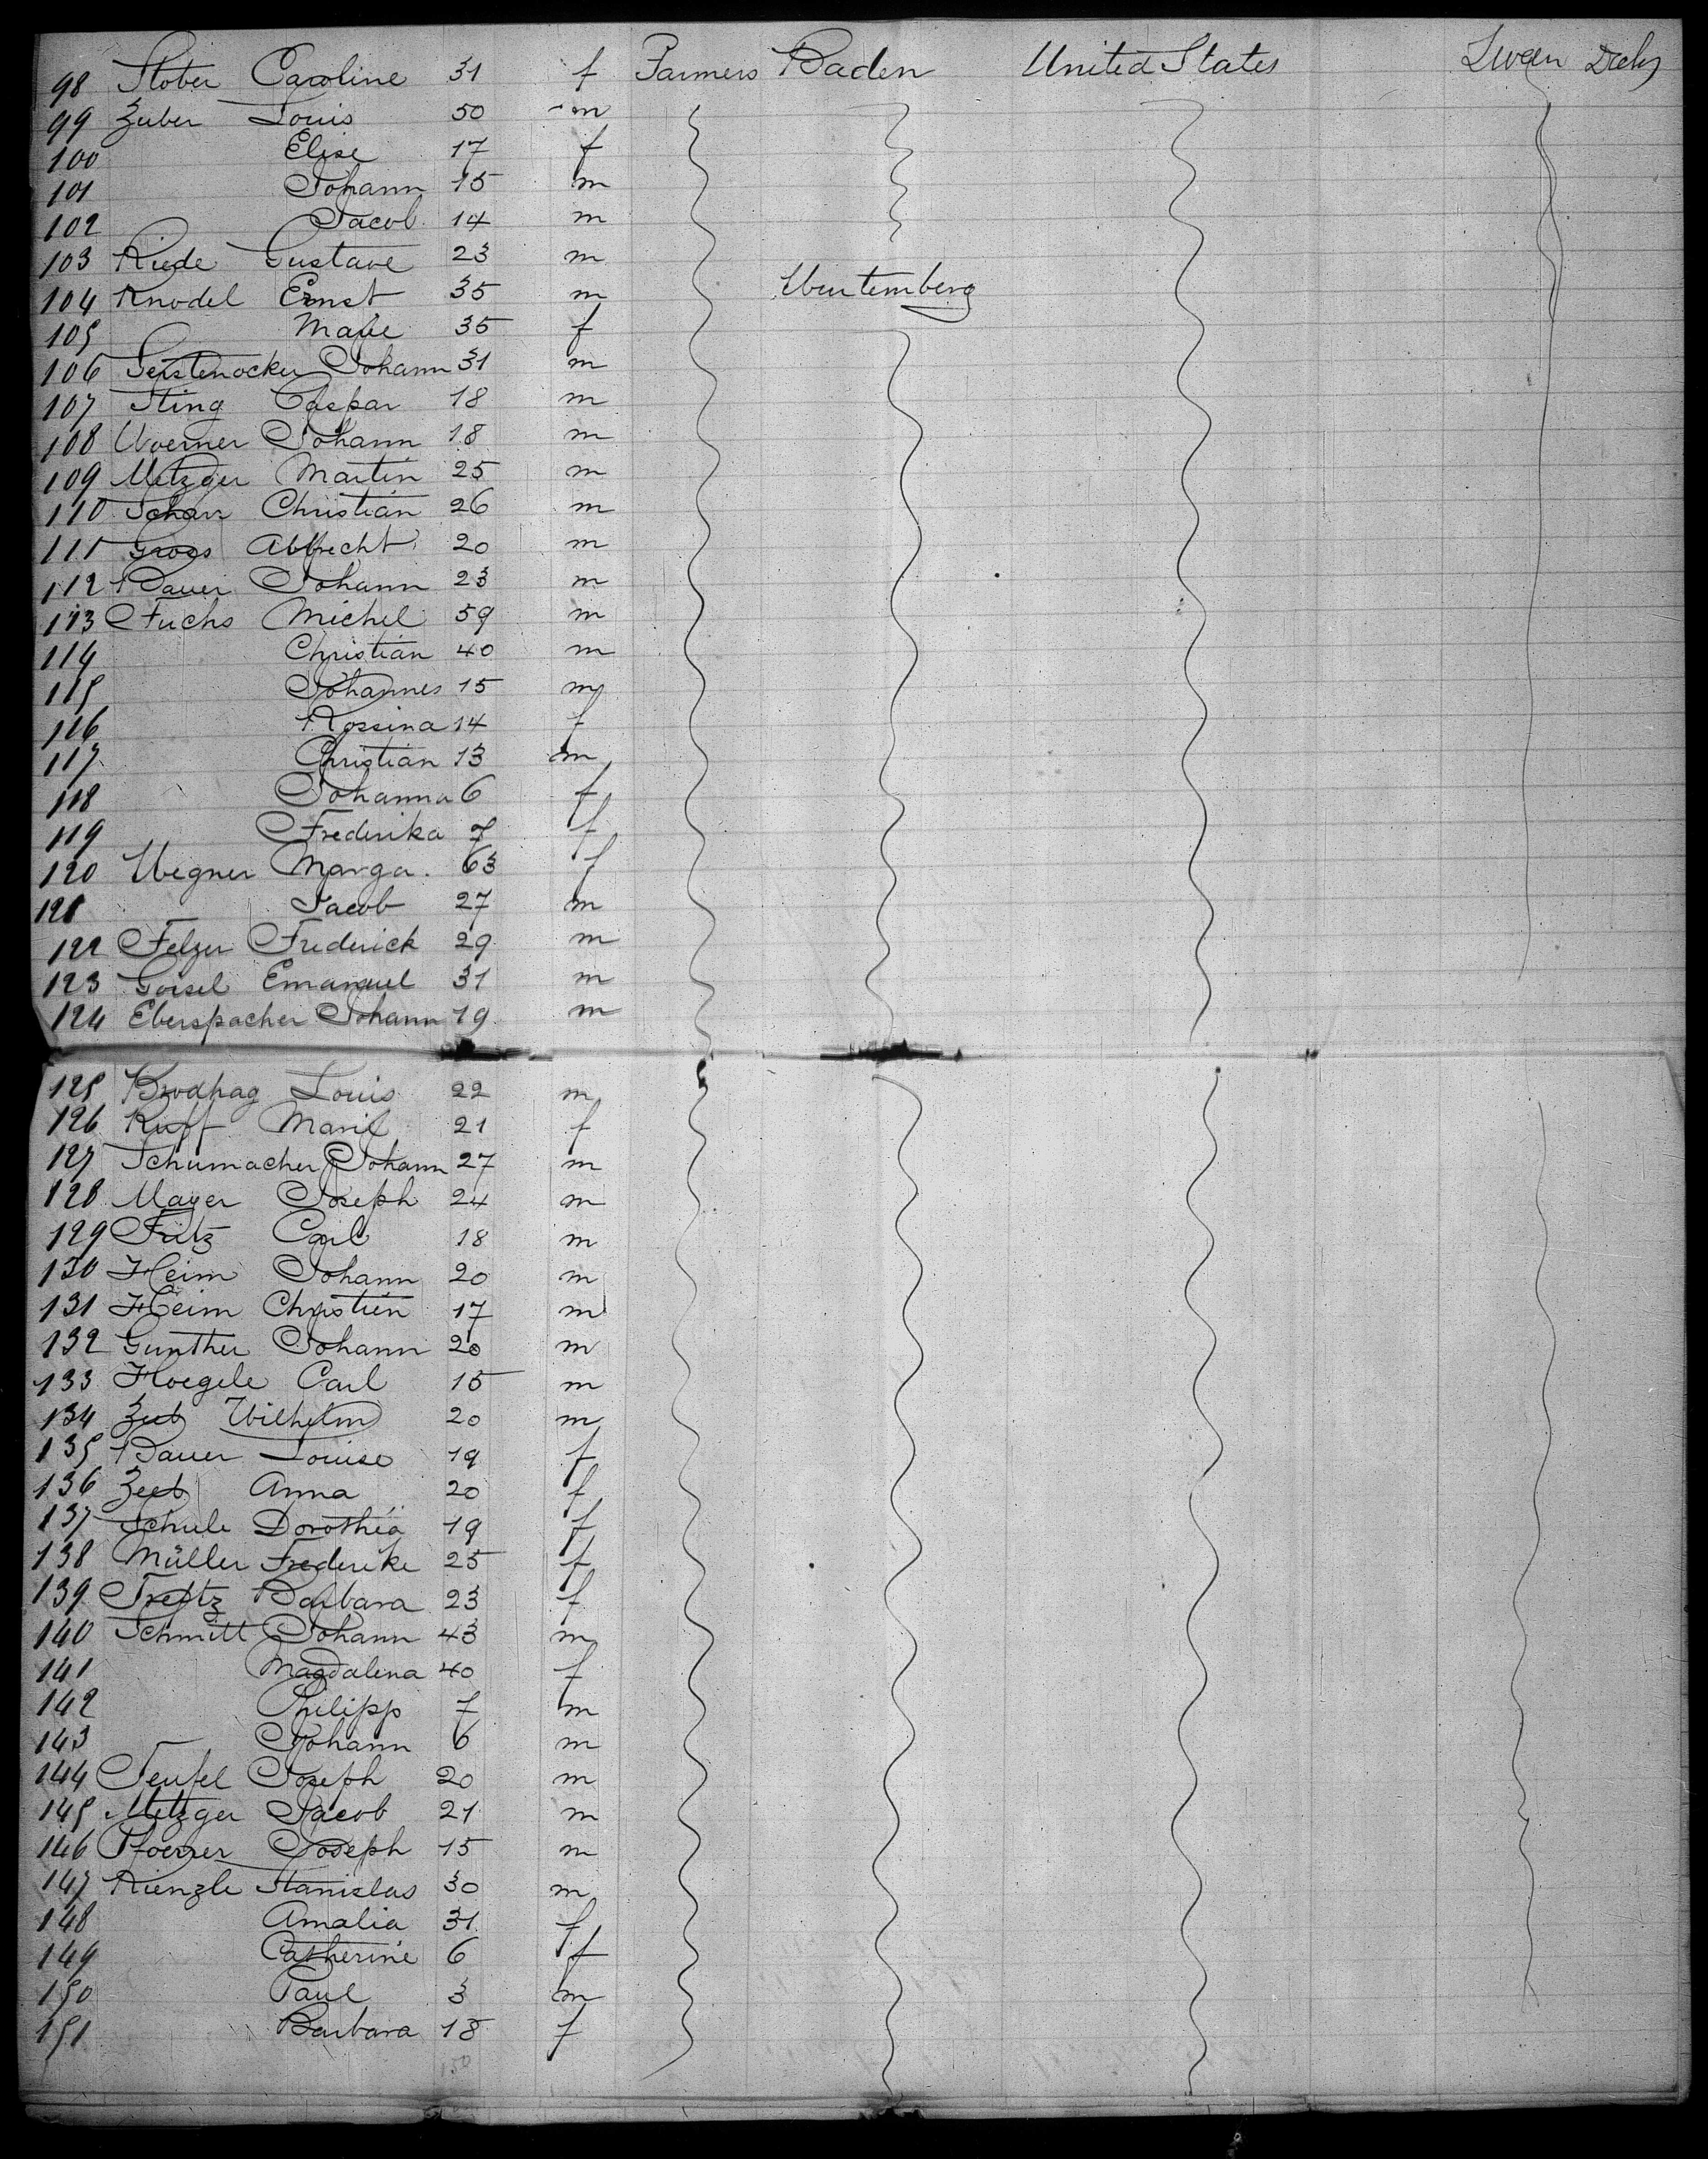 98 Stober Caroline 31 f Farmers Baden United States
99 Zuber Louis 50 m
100 Elise 17 f
101 Johann 15 m
102 Jacob 14 m
103 Riede Gustave 23 m
104 Knodel Ernst 35 m Wurtemberg
105 35 f
106 Johann 31 m
107 Sting Caspar 18 m
108 Woerner Johann 18 m
109 Metzger Martin 25 m
110 Christian 26 m
111 Gross Albrecht 20 m
112 Bauer Johann 23 m
113 Fuchs Michel 59 m
114 Christian 40 m
115 Johannes 15 m
116 Rossina 14 f
117 Christian 13 m
118 Johanna 6 f
119 Frederika 7 f
120 Wegner Marga. 63 f
121 Jacob 27 m
122 Felger Frederick 29 m
123 Goisel Emanuel 31 m
124 Eberspacher Johann 19 m
125 Brodhag Louis 22 m
126 Ruff Marie 21 f
127 Schumacher Johann 27 m
128 Mayer Joseph 24 m
129 Fritz Carl 18 m
130 Heim Johann 20 m
131 Heim Christien 17 m
132 Gunther Johann 20 m
133 Hoegele Carl 15 m
134 Zeeb Wilhelm 20 m
135 Bauer Louise 19 f
136 Zeeb Anna 20 f
137 Schule Dorothea 19 f
138 Müller Frederike 25 f
139 Barbara 23 f
140 Schmitt Johann 43 m
141 Magdalena 40 f
142 Philipp 7 m
143 Johann 6 m
144 Teufel Joseph 20 m
145 Metzger Jacob 21 m
146 Joseph 15 m
147 Kienzle Stanislas 30 m
148 Amalia 31 f
149 Catherine 6 f
150 Paul 3 m
151 Barbara 18 f